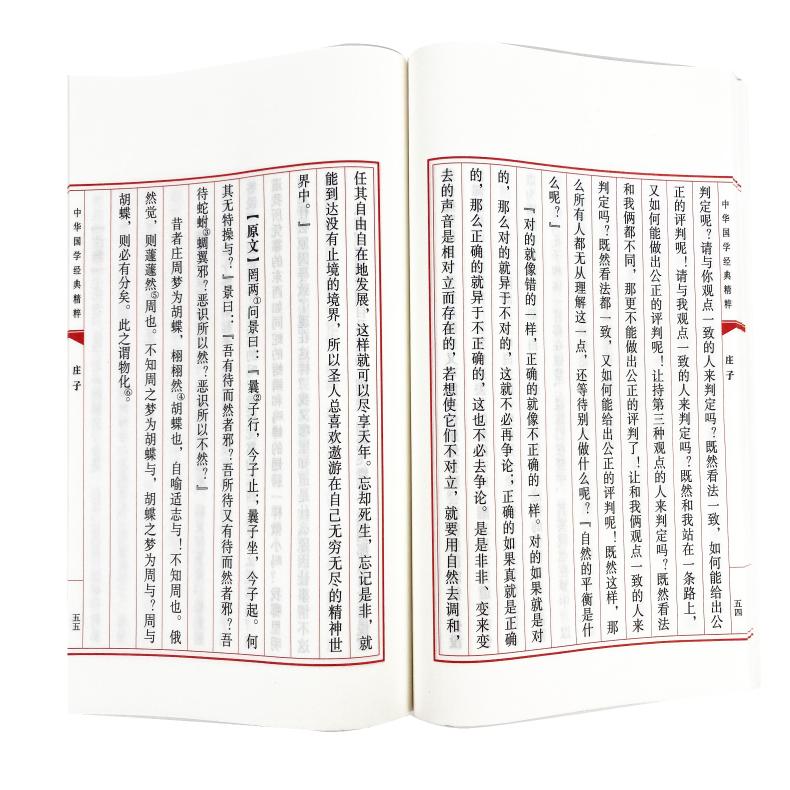 中华国学经典精粹
庄子
五四
判定呢？请与你观点一致的人来判定吗？既然看法一致，如何能给出公
正的评判呢！请与我观点一致的人来判定吗？既然和我站在一条路上，
又如何能做出公正的评判呢！让持第三种观点的人来判定吗？既然看法
和我俩都不同，那更不能做出公正的评判了！让和我俩观点一致的人来
判定吗？既然看法都一致，又如何能给出公正的评判呢！既然这样，那
么所有人都无从理解这一点，还等待别人做什么呢？『自然的平衡是什
么呢？』
『对的就像错的一样，正确的就像不正确的一样。对的如果就是对
的，那么对的就异于不对的，这就不必再争论；正确的如果真就是正确
的，那么正确的就异于不正确的，这也不必去争论。是是非非、变来变
去的声音是相对立而存在的，若想使它们不对立，就要用自然去调和，
任其自由自在地发展，这样就可以尽享天年。忘却死生，忘记是非，就
能到达没有止境的境界，所以圣人总喜欢遨游在自己无穷无尽的精神世
界中。』
【原文】罔两①问景曰：『曩②子行，今子止；曩子坐，今子起。何
其无特操与？』景曰：『吾有待而然者邪？吾所待又有待而然者邪？吾
待蛇蚹③蜩翼邪？恶识所以然？恶识所以不然？』
昔者庄周梦为胡蝶，栩栩然④胡蝶也，自喻适志与！不知周也。俄
然觉，则蘧蘧然⑤周也。不知周之梦为胡蝶与，胡蝶之梦为周与？周与
胡蝶，则必有分矣。此之谓物化⑥。
中华国学经典精粹
庄子
五五